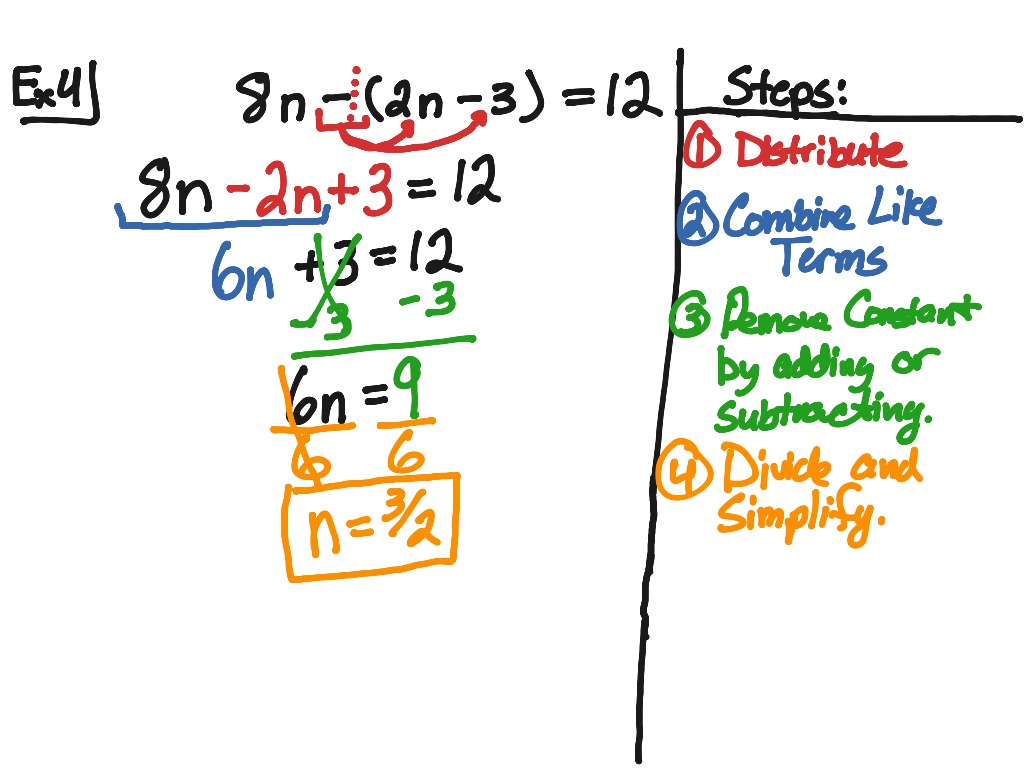 Ex 4
8n - (2n - 3) = 12
8n - 2n + 3 = 12
6n + 3 = 12
- 3 - 3
6n = 9
6 6
n = 3/2
Steps:
① Distribute
② Combine Like
Terms
③ Remove Constant
by adding or
subtracting.
④ Divide and
Simplify.